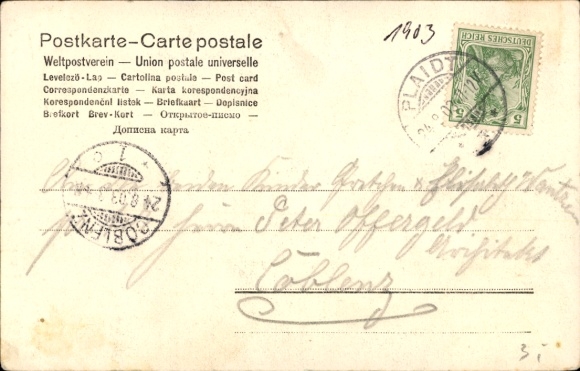 1903
Postkarte – Carte postale
Weltpostverein — Union postale universelle
Levelező-Lap — Cartolina postale — Post card
Correspondenzkarte — Karta korespondencyjna
Korespondenční listek — Briefkaart — Dopisnice
Brefkort Brev-Kort — Открытое письмо —
Дописна карта
DEUTSCHES REICH
5 5
PLAIDT
COBLENZ
den Kinder Gretchen & Elisabeth
Herrn Peter Offergeld
Architekt
Coblenz